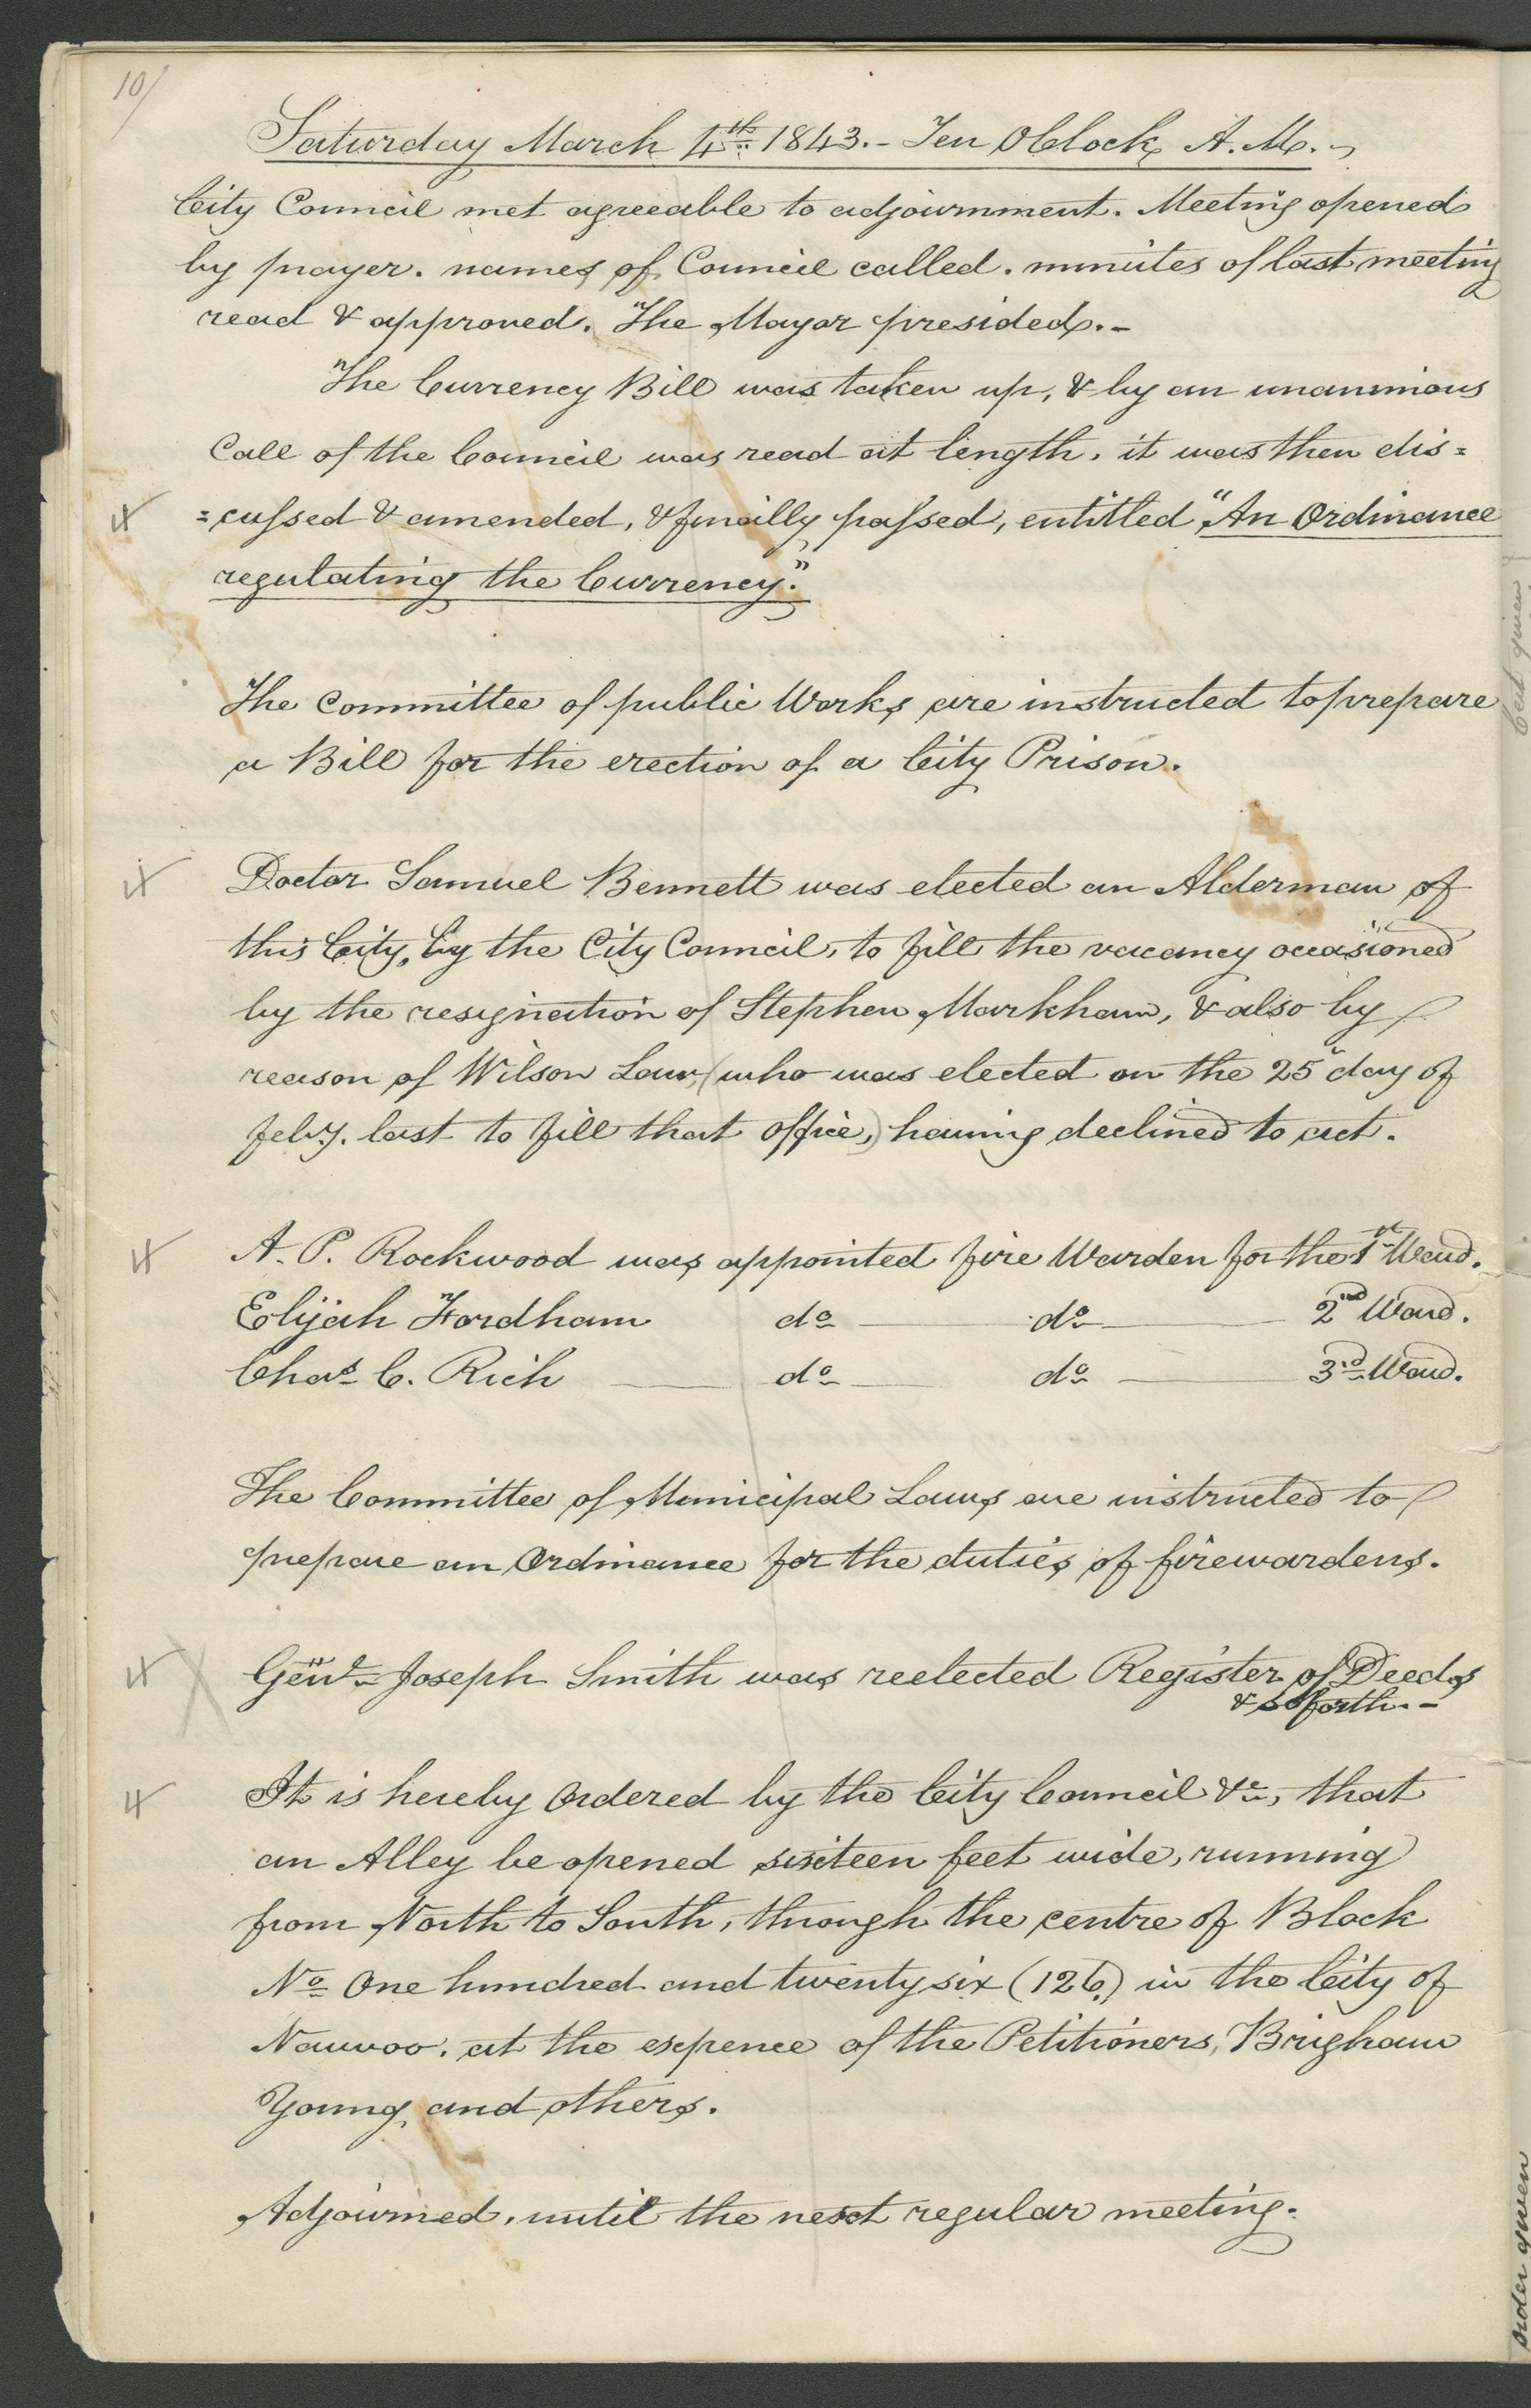 10/
Saturday March 4th 1843.- Ten OClock A.M.-
City Council met agreeable to adjournment. Meeting opened
by prayer. names of Council called. minutes of last meeting
read & approved. The Mayor presided.-
The Currency Bill was taken up, & by an unanimous
Call of the Council was read at length, it was then dis=
=cussed & amended, & finally passed, entitled, "An Ordinance
regulating the Currency."
The Committee of public Works are instructed to prepare
a Bill for the erection of a City Prison.
Doctor Samuel Bennett was elected an Alderman of
this City, by the City Council, to fill the vacancy occasioned
by the resignation of Stephen Markham, & also by
reason of Wilson Law, (who was elected on the 25" day of
Feby. last to fill that office,) having declined to act.
A. P. Rockwood was appointed fire Warden for the 1st Ward.
Elijah Fordham do do 2nd Ward.
Chas. C. Rich do do 3rd Ward.
The Committee of Municipal Laws are instructed to
prepare an Ordinance for the duties of firewardens.
Genl. Joseph Smith was reelected Register of Deeds
& so forth.-
It is hereby Ordered by the City Council &c, that
an Alley be opened sixteen feet wide, running
from North to South, through the centre of Block
No. One hundred and twenty six (126.) in the City of
Nauvoo, at the expence of the Petitioners, Brigham
Young, and others.
Adjourned, until the next regular meeting.
order given